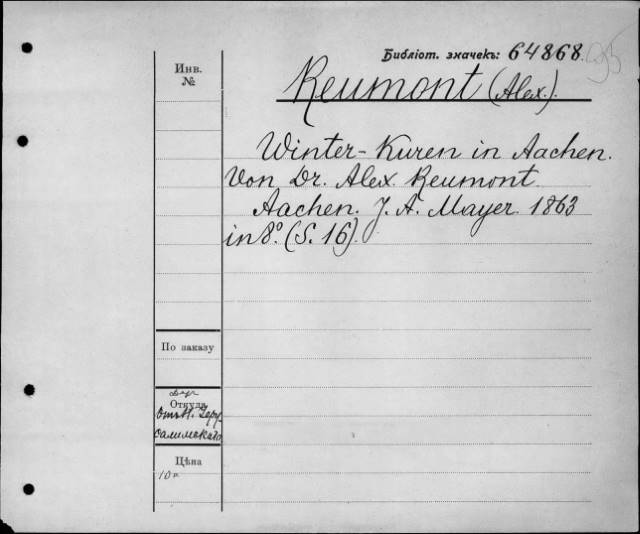 Библіот. значекъ: 64868.
95
Инв.
№
Reumont (Alex.).
Winter-Kuren in Aachen.
Von Dr. Alex. Reumont.
Aachen. J. A. Mayer. 1863
in 8º. (S. 16).
По заказу
Откуда
Цѣна
10 к.